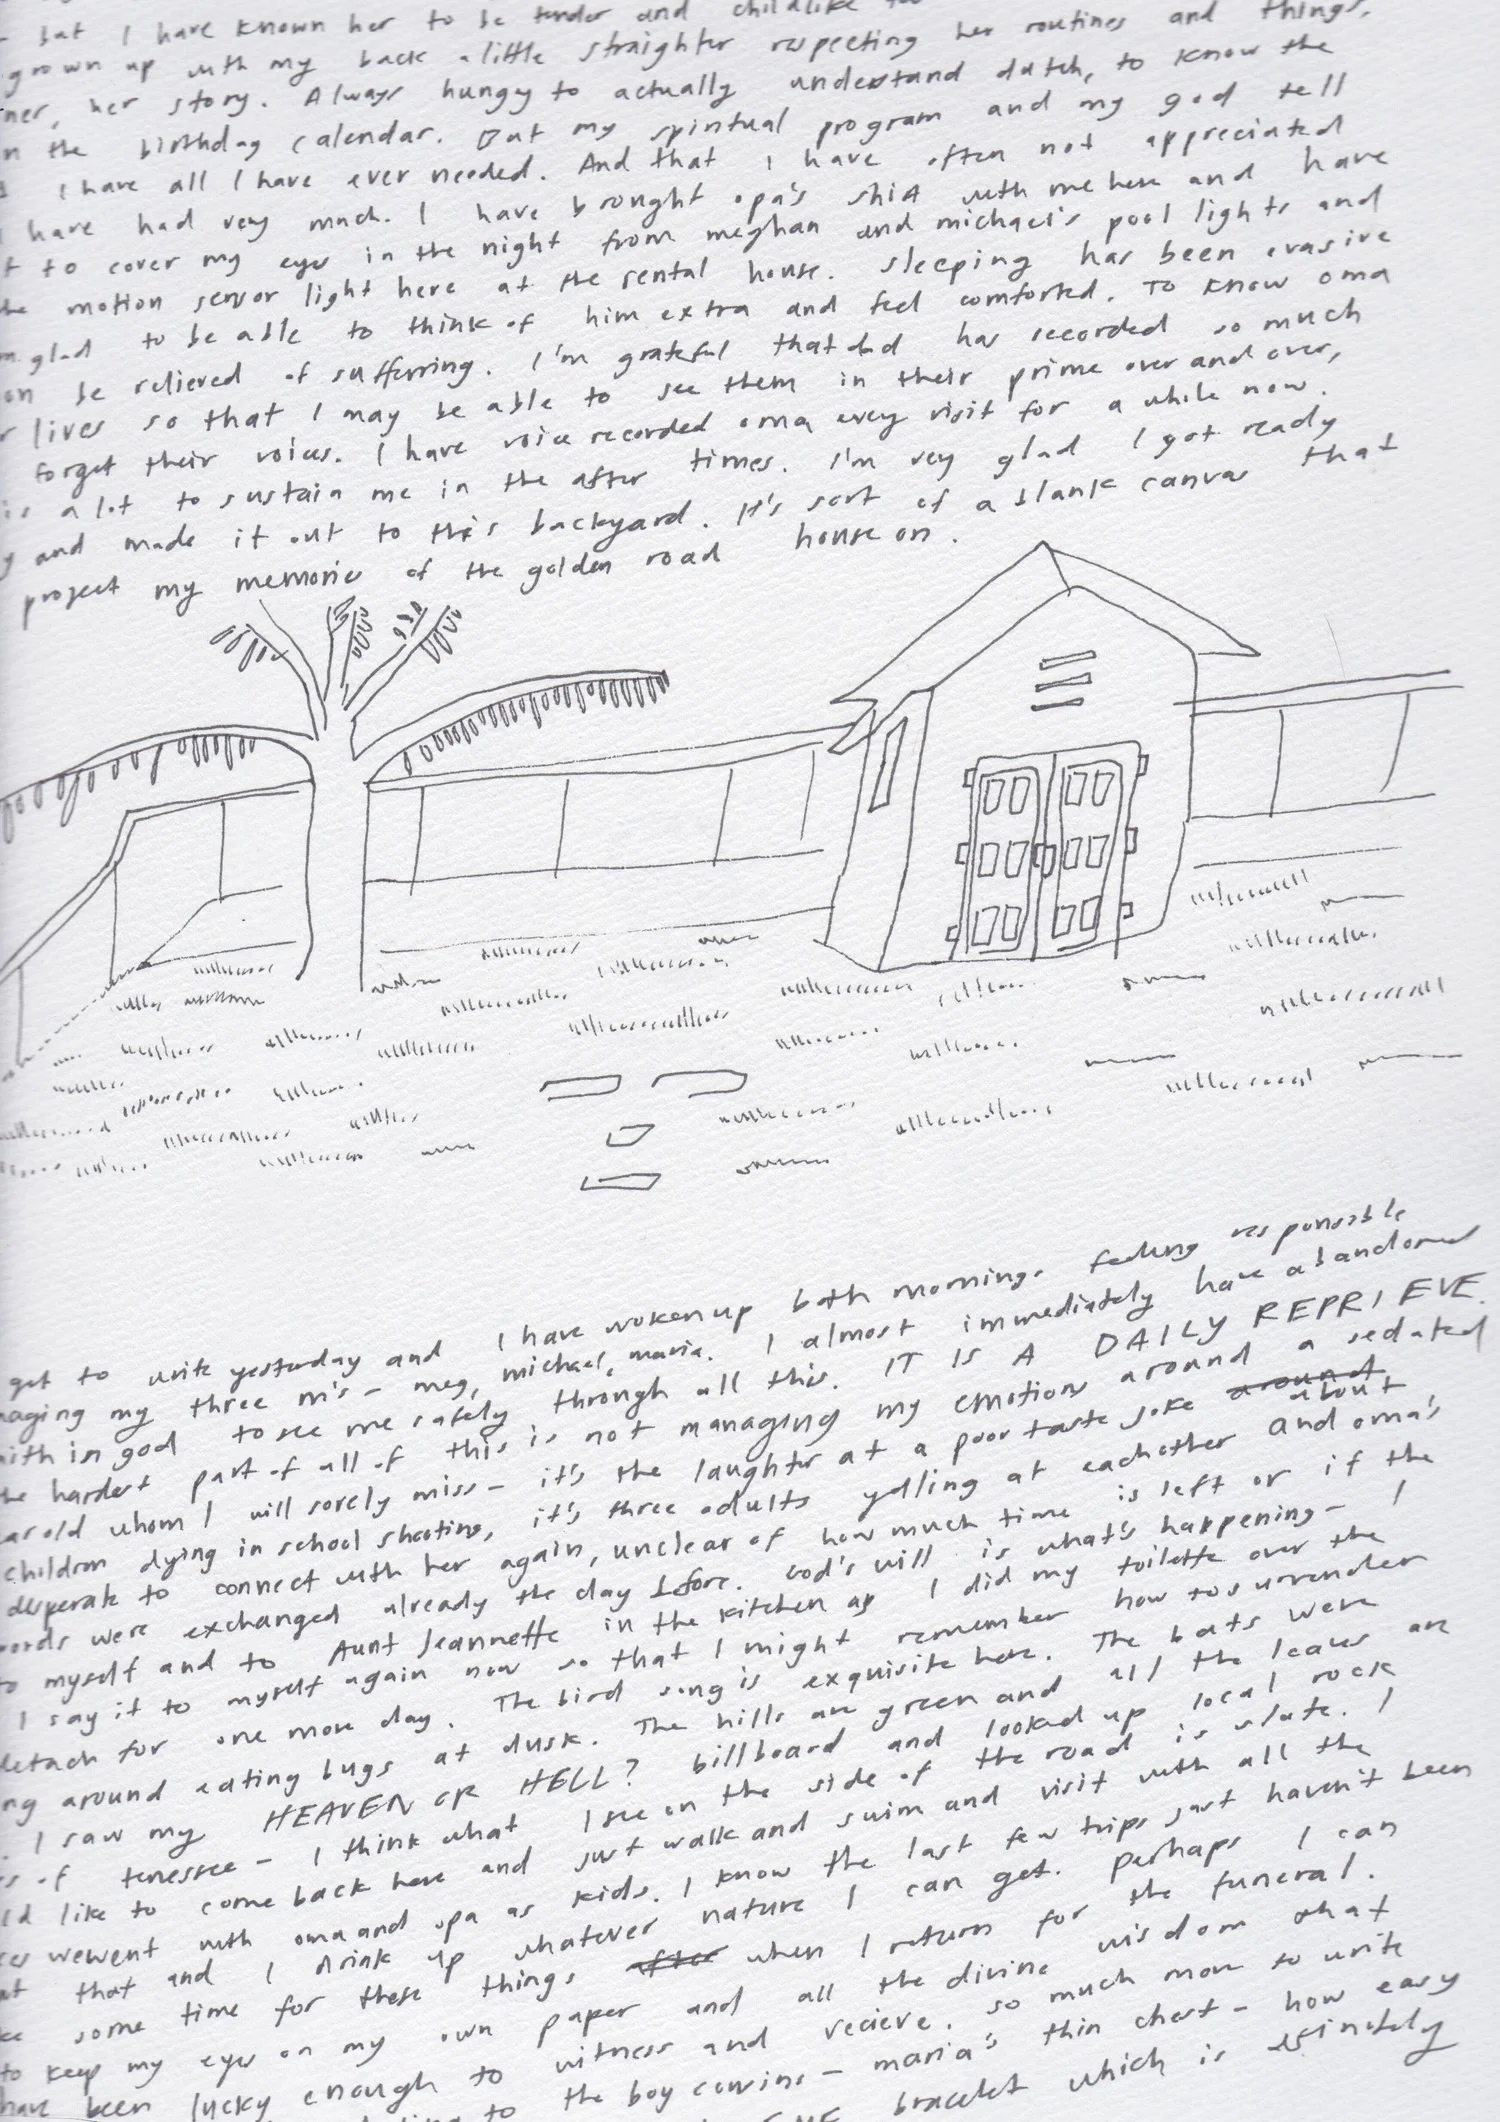 but I have known her to be tender and childlike too
grown up with my back a little straighter respecting her routines and things,
her story. Always hungy to actually understand dutch, to know the
the birthday calendar. But my spiritual program and my god tell
I have all I have ever needed. And that I have often not appreciated
have had very much. I have brought opa's shirt with me here and have
to cover my eyes in the night from meghan and michael's pool lights and
motion sensor light here at the rental house. sleeping has been evasive
glad to be able to think of him extra and feel comforted. To know oma
be relieved of suffering. I'm grateful that dad has recorded so much
lives so that I may be able to see them in their prime over and over,
forget their voices. I have voice recorded oma every visit for a while now.
is a lot to sustain me in the after times. I'm very glad I got ready
and made it out to this backyard. It's sort of a blank canvas that
project my memories of the golden road house on.
get to write yesterday and I have woken up both mornings feeling responsible
my three m's - meg, michael, maria. I almost immediately have abandoned
in god to see me safely through all this. IT IS A DAILY REPRIEVE.
hardest part of all of this is not managing my emotions around a sedated
old whom I will sorely miss - it's the laughter at a poor taste joke around about
children dying in school shooting, it's three adults yelling at eachother and oma's
desperate to connect with her again, unclear of how much time is left or if the
words were exchanged already the day before. God's will is what's happening - I
to myself and to Aunt Jeannette in the kitchen as I did my toilette over the
I say it to myself again now so that I might remember how to surrender
detach for one more day. The bird song is exquisite here. The bats were
around eating bugs at dusk. The hills are green and all the leaves are
I saw my HEAVEN OR HELL? billboard and looked up local rock
of tenessee - I think what I see on the side of the road is slate. I
like to come back here and just walk and swim and visit with all the
wewent with oma and opa as kids. I know the last few trips just haven't been
that and I drink up whatever nature I can get. Perhaps I can
some time for these things after when I return for the funeral.
to keep my eyes on my own paper and all the divine wisdom that
have been lucky enough to witness and recieve. so much more to write
to the boy cousins - maria's thin chest - how easy
bracelet which is definitely